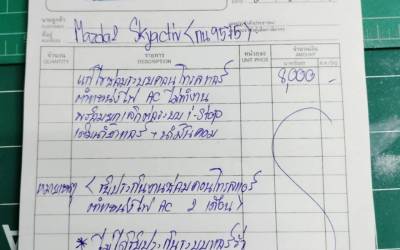 นามลูกค้า Mazda2 Skyactiv (กน 9575)
ที่อยู่
จำนวน รายการ หน่วยละ จำนวนเงิน
QUANTITY DESCRIPTION UNIT PRICE AMOUNT
แก้ไขซ่อมระบบคอนโทรลแอร์ 8,000 -
ตำแหน่งไฟ AC ไม่ทำงาน
พร้อมยกเลิกระบบ i-Stop
เติมน้ำยาแอร์ + น้ำมันคอม
หมายเหตุ (รับประกันงานซ่อมคอนโทรลแอร์
ตำแหน่งไฟ AC 2 เดือน)
* ไม่ได้รับประกันระบบแอร์รั่ว